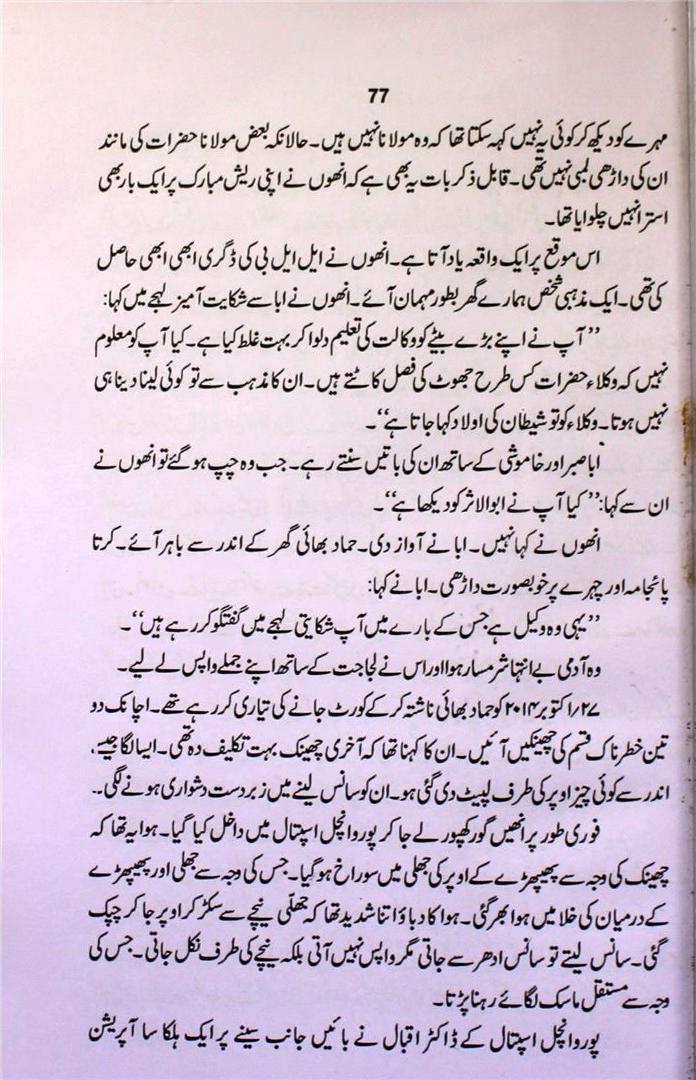 77
مہرے کو دیکھ کر کوئی یہ نہیں کہہ سکتا تھا کہ وہ مولانا نہیں ہیں۔ حالانکہ بعض مولانا حضرات کی مانند
ان کی داڑھی لمبی نہیں تھی۔ قابل ذکر بات یہ بھی ہے کہ انھوں نے اپنی ریش مبارک پر ایک بار بھی
استرا نہیں چلوایا تھا۔
اس موقع پر ایک واقعہ یاد آتا ہے۔ انھوں نے ایل ایل بی کی ڈگری ابھی ابھی حاصل
کی تھی۔ ایک مذہبی شخص ہمارے گھر بطور مہمان آئے۔ انھوں نے ابا سے شکایت آمیز لہجے میں کہا:
’’آپ نے اپنے بڑے بیٹے کو وکالت کی تعلیم دلوا کر بہت غلط کیا ہے۔ کیا آپ کو معلوم
نہیں کہ وکلاء حضرات کس طرح جھوٹ کی فصل کاٹتے ہیں۔ ان کا مذہب سے تو کوئی لینا دینا ہی
نہیں ہوتا۔ وکلاء کو تو شیطان کی اولاد کہا جاتا ہے‘‘۔
ابا صبر اور خاموشی کے ساتھ ان کی باتیں سنتے رہے۔ جب وہ چپ ہو گئے تو انھوں نے
ان سے کہا: ’’کیا آپ نے ابوالاثر کو دیکھا ہے‘‘۔
انھوں نے کہا نہیں۔ ابا نے آواز دی۔ حماد بھائی گھر کے اندر سے باہر آئے۔ کرتا
پائجامہ اور چہرے پر خوبصورت داڑھی۔ ابا نے کہا:
’’یہی وہ وکیل ہے جس کے بارے میں آپ شکایتی لہجے میں گفتگو کر رہے ہیں‘‘۔
وہ آدمی بے انتہا شرمسار ہوا اور اس نے لجاجت کے ساتھ اپنے جملے واپس لے لیے۔
۲۷/اکتوبر ۲۰۱۴ کو حماد بھائی ناشتہ کر کے کورٹ جانے کی تیاری کر رہے تھے۔ اچانک دو
تین خطرناک قسم کی چھینکیں آئیں۔ ان کا کہنا تھا کہ آخری چھینک بہت تکلیف دہ تھی۔ ایسا لگا جیسے،
اندر سے کوئی چیز اوپر کی طرف لپیٹ دی گئی ہو۔ ان کو سانس لینے میں زبردست دشواری ہونے لگی۔۔
فوری طور پر انھیں گورکھپور لے جا کر پوروانچل اسپتال میں داخل کیا گیا۔ ہوا یہ تھا کہ
چھینک کی وجہ سے پھیپھڑے کے اوپر کی جھلی میں سوراخ ہو گیا۔ جس کی وجہ سے جھلی اور پھیپھڑے
کے درمیان کی خلا میں ہوا بھر گئی۔ ہوا کا دباؤ اتنا شدید تھا کہ جھلّی نیچے سے سکڑ کر اوپر جا کر چپک
گئی۔ سانس لیتے تو سانس ادھر سے جاتی مگر واپس نہیں آتی بلکہ نیچے کی طرف نکل جاتی۔ جس کی
وجہ سے مستقل ماسک لگائے رہنا پڑتا۔
پوروانچل اسپتال کے ڈاکٹر اقبال نے بائیں جانب سینے پر ایک ہلکا سا آپریشن